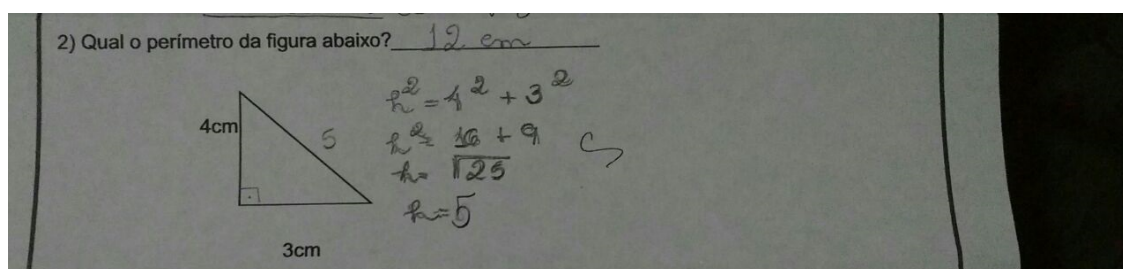 2) Qual o perímetro da figura abaixo? 12 cm
4cm
5
3cm
h² = 4² + 3²
h² = 16 + 9
h = √25
h = 5